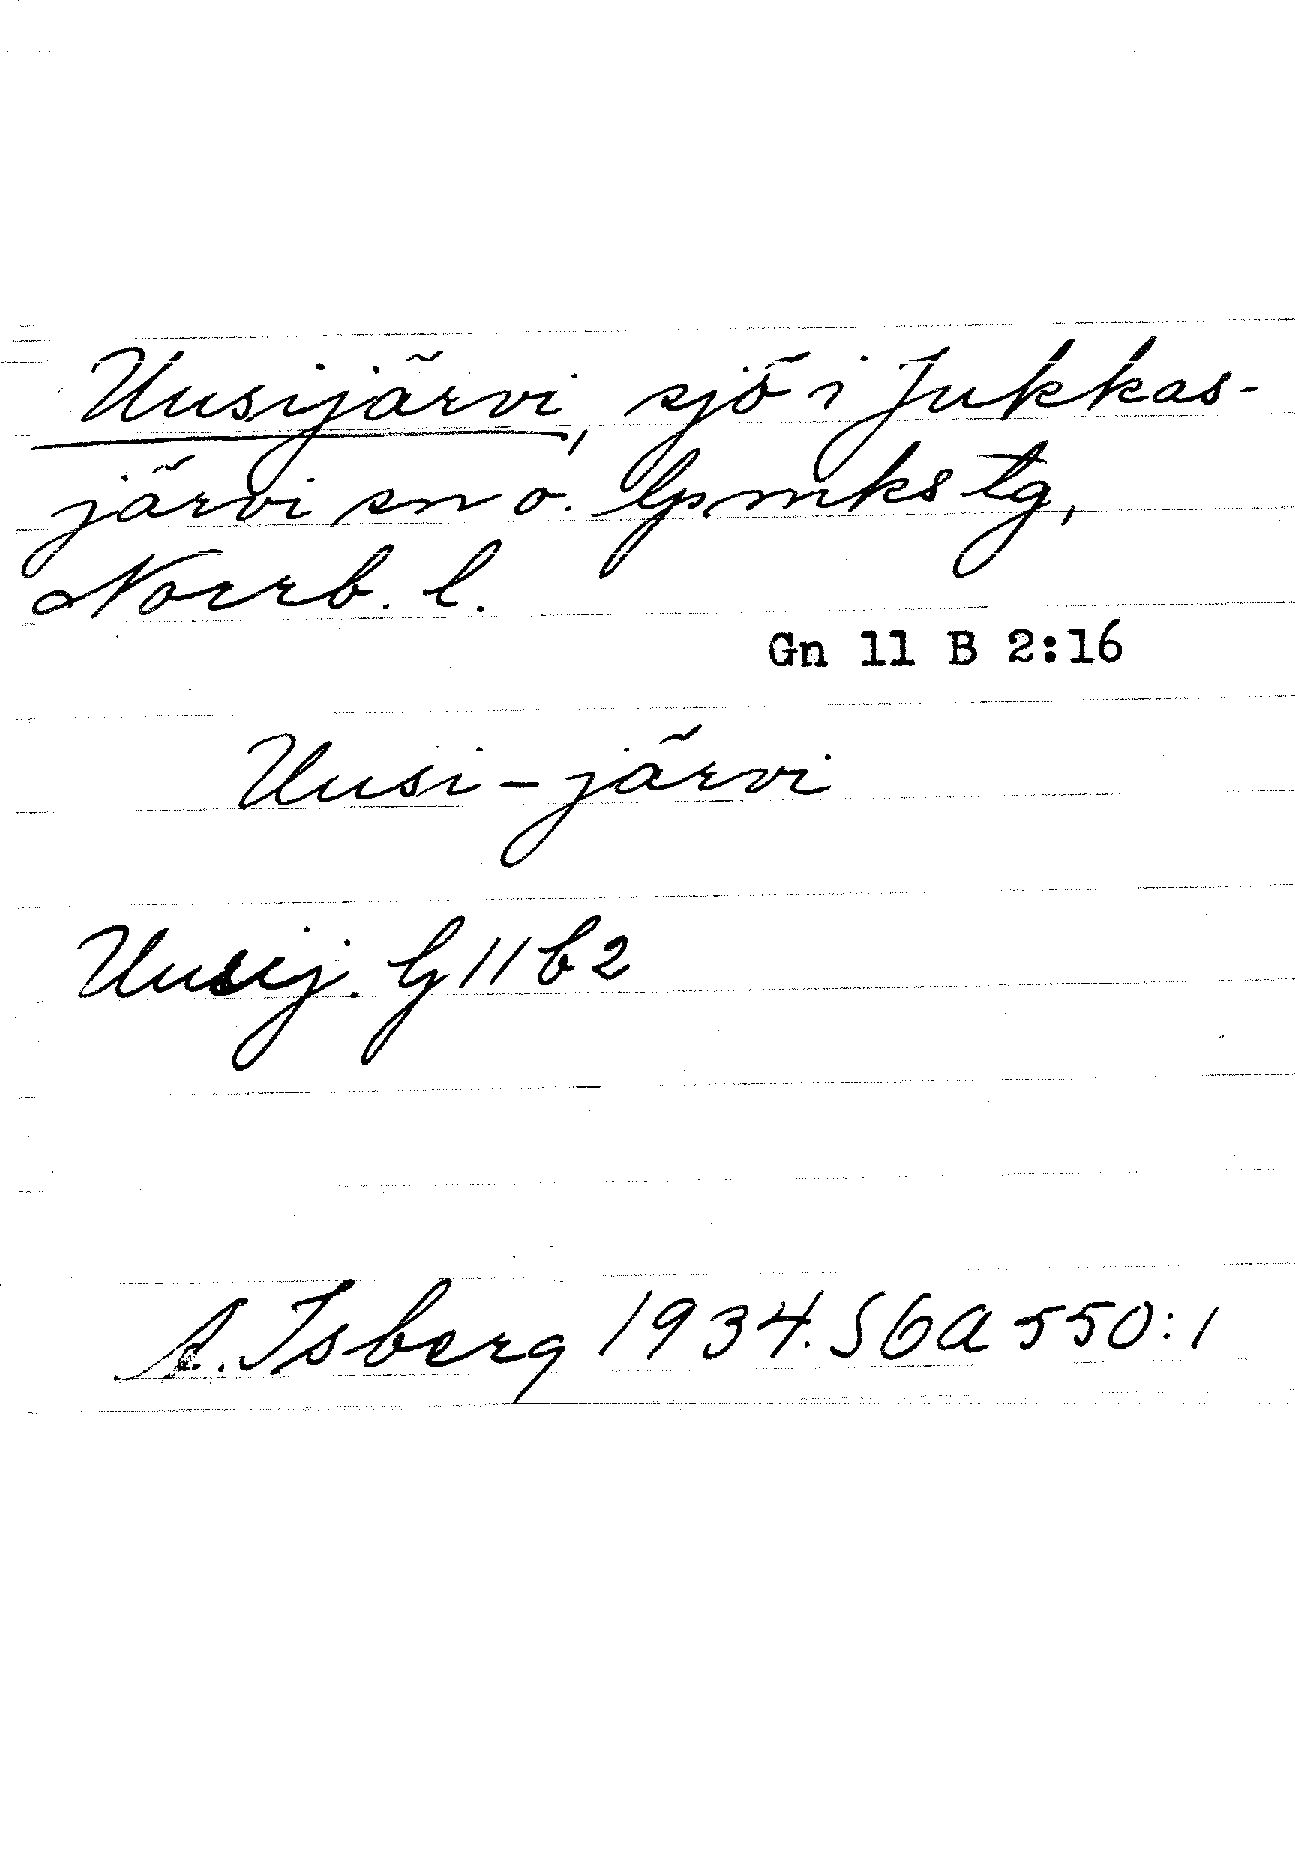 Uusijärvi, sjö i Jukkas-
järvi sn o. lpmks tg,
Norrb. l.
Gn 11 B 2:16
Uusi-järvi
Uusij. G 11 b 2
A. Isberg 1934. SGA 550:1